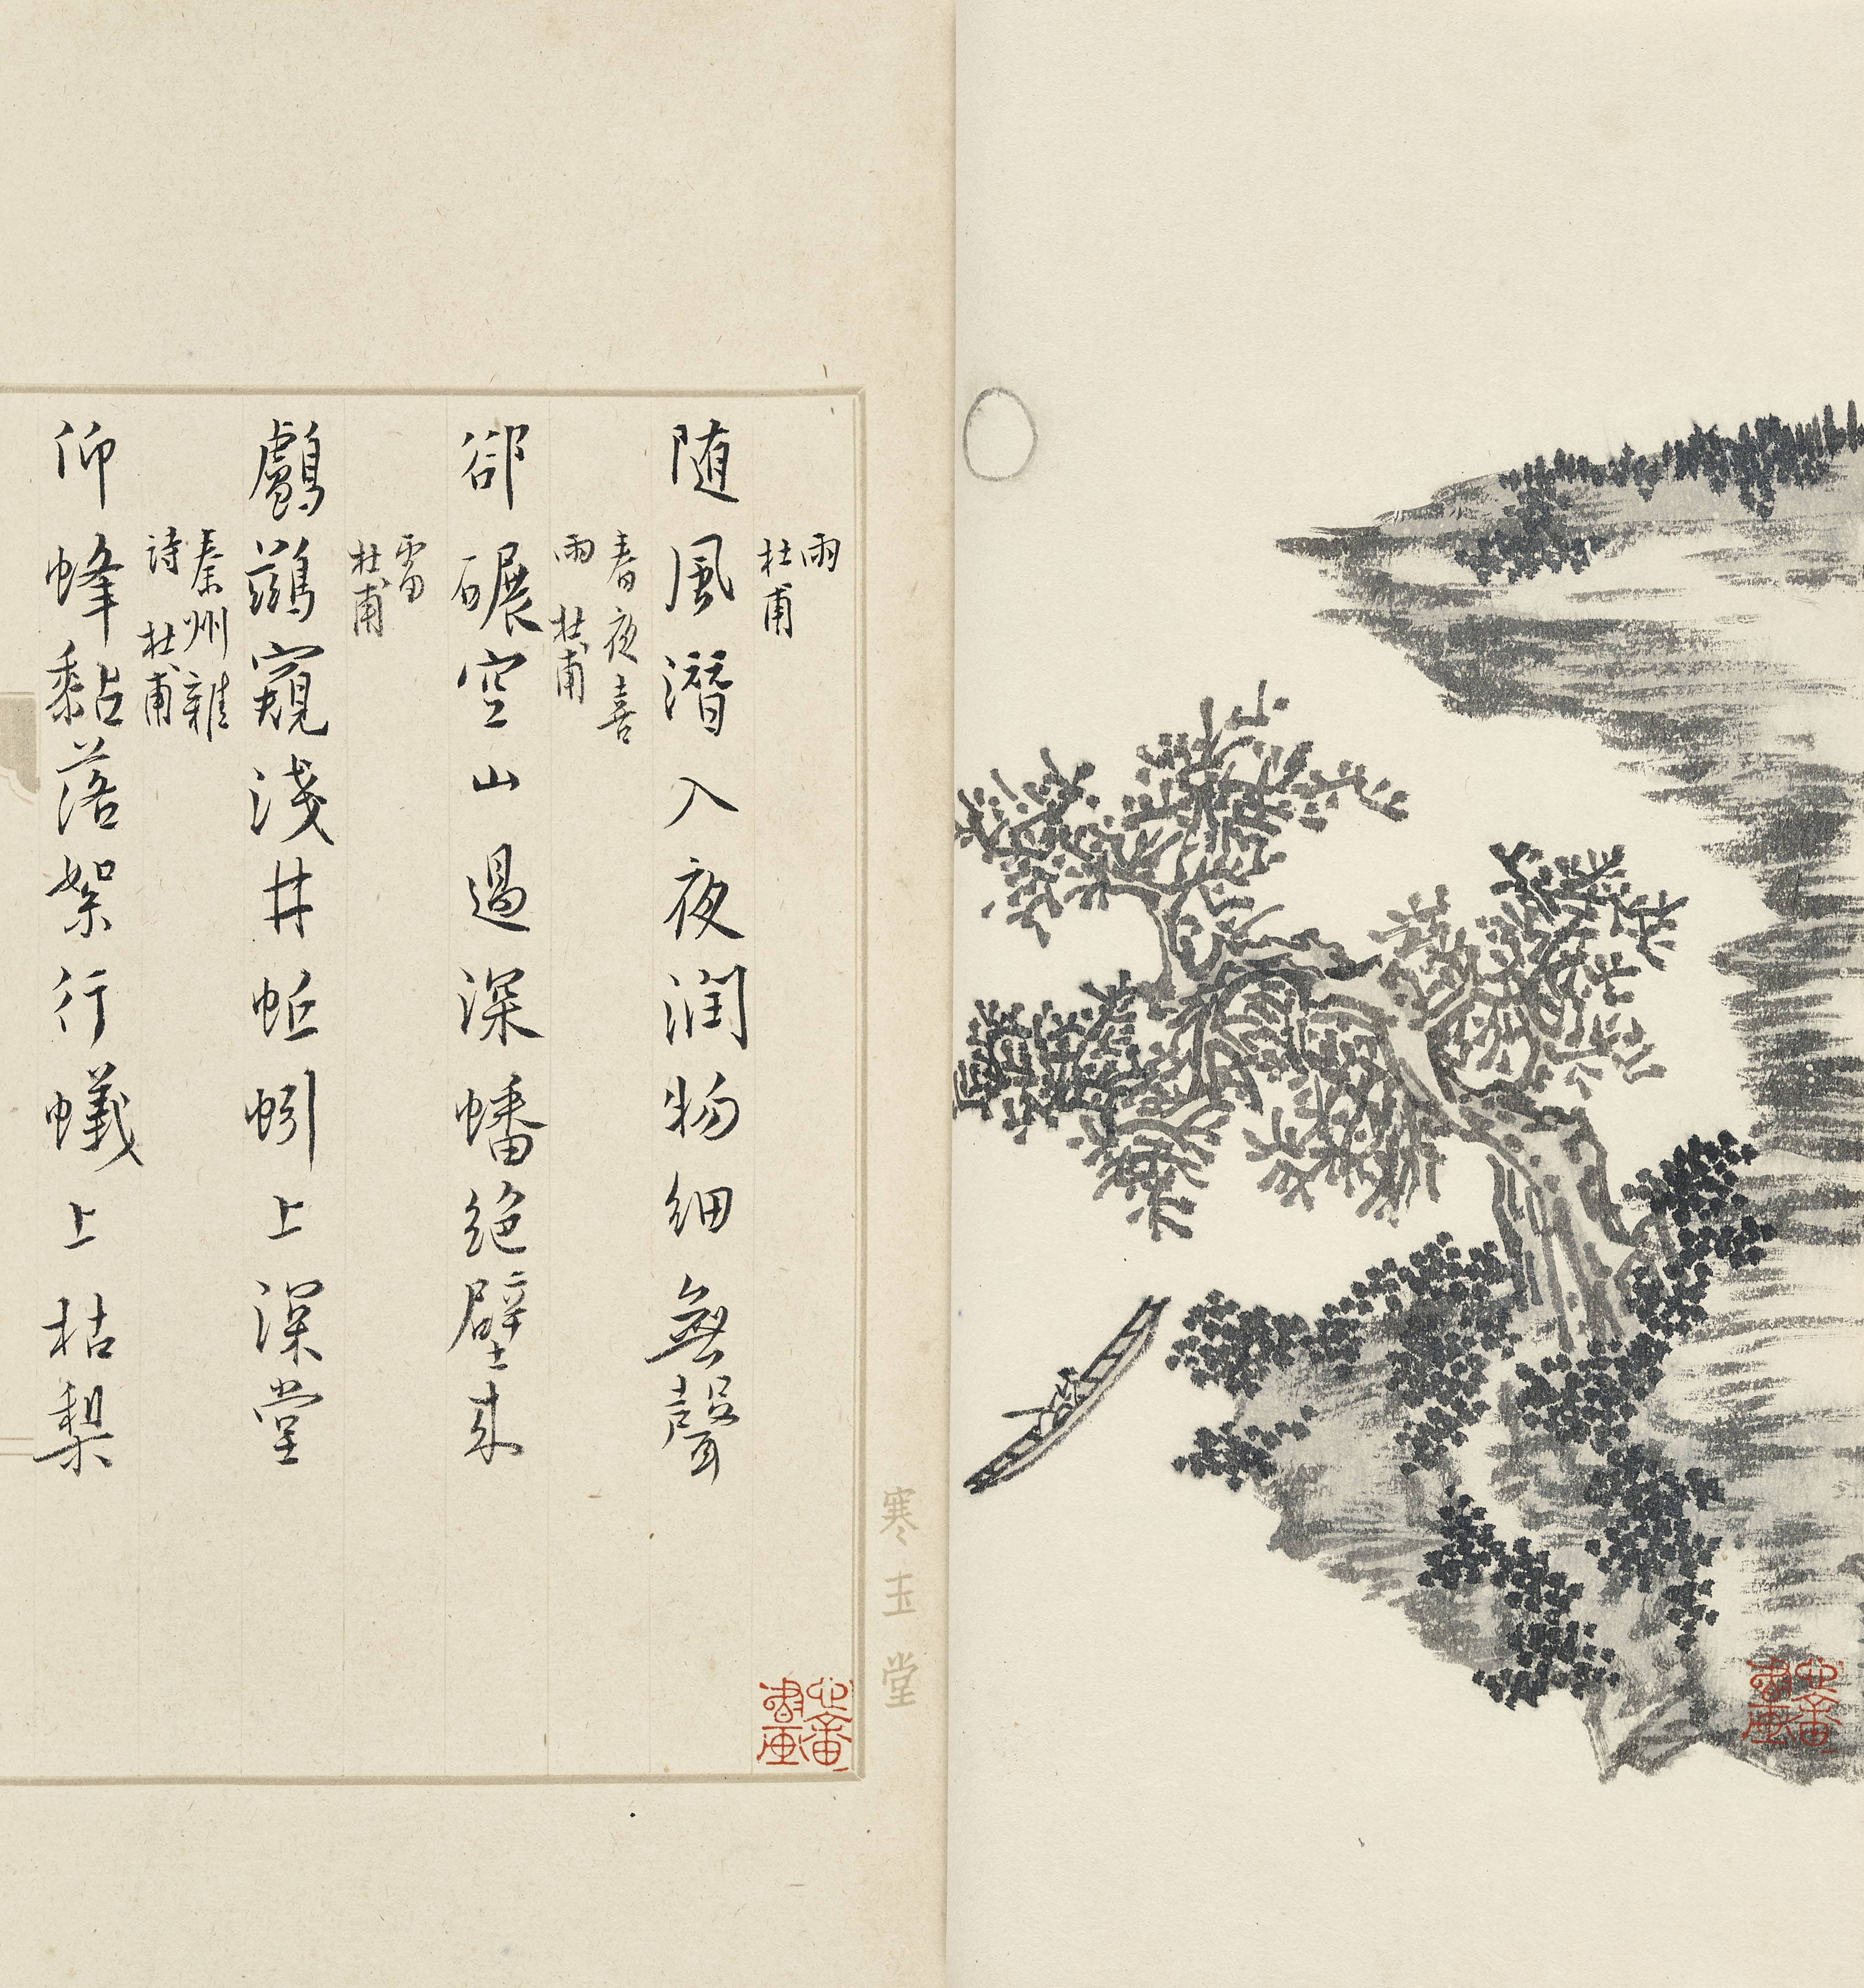 心畬書畫
寒玉堂
雨
杜甫
随風潛入夜潤物細無聲
春夜喜
雨 杜甫
卻碾空山過深蟠絕壁來
雷
杜甫
鸕鷀窺淺井蚯蚓上深堂
秦州雜
詩 杜甫
仰蜂黏落絮行蟻上枯梨
心畬書畫